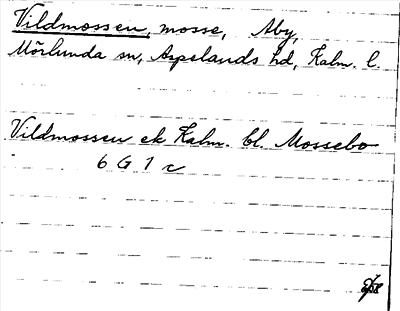 Vildmossen, mosse, Åby,
Mörlunda sn, Aspelands hd, Kalm. l.
Vildmossen ek Kalm. bl. Mossebo
6 G 1 c